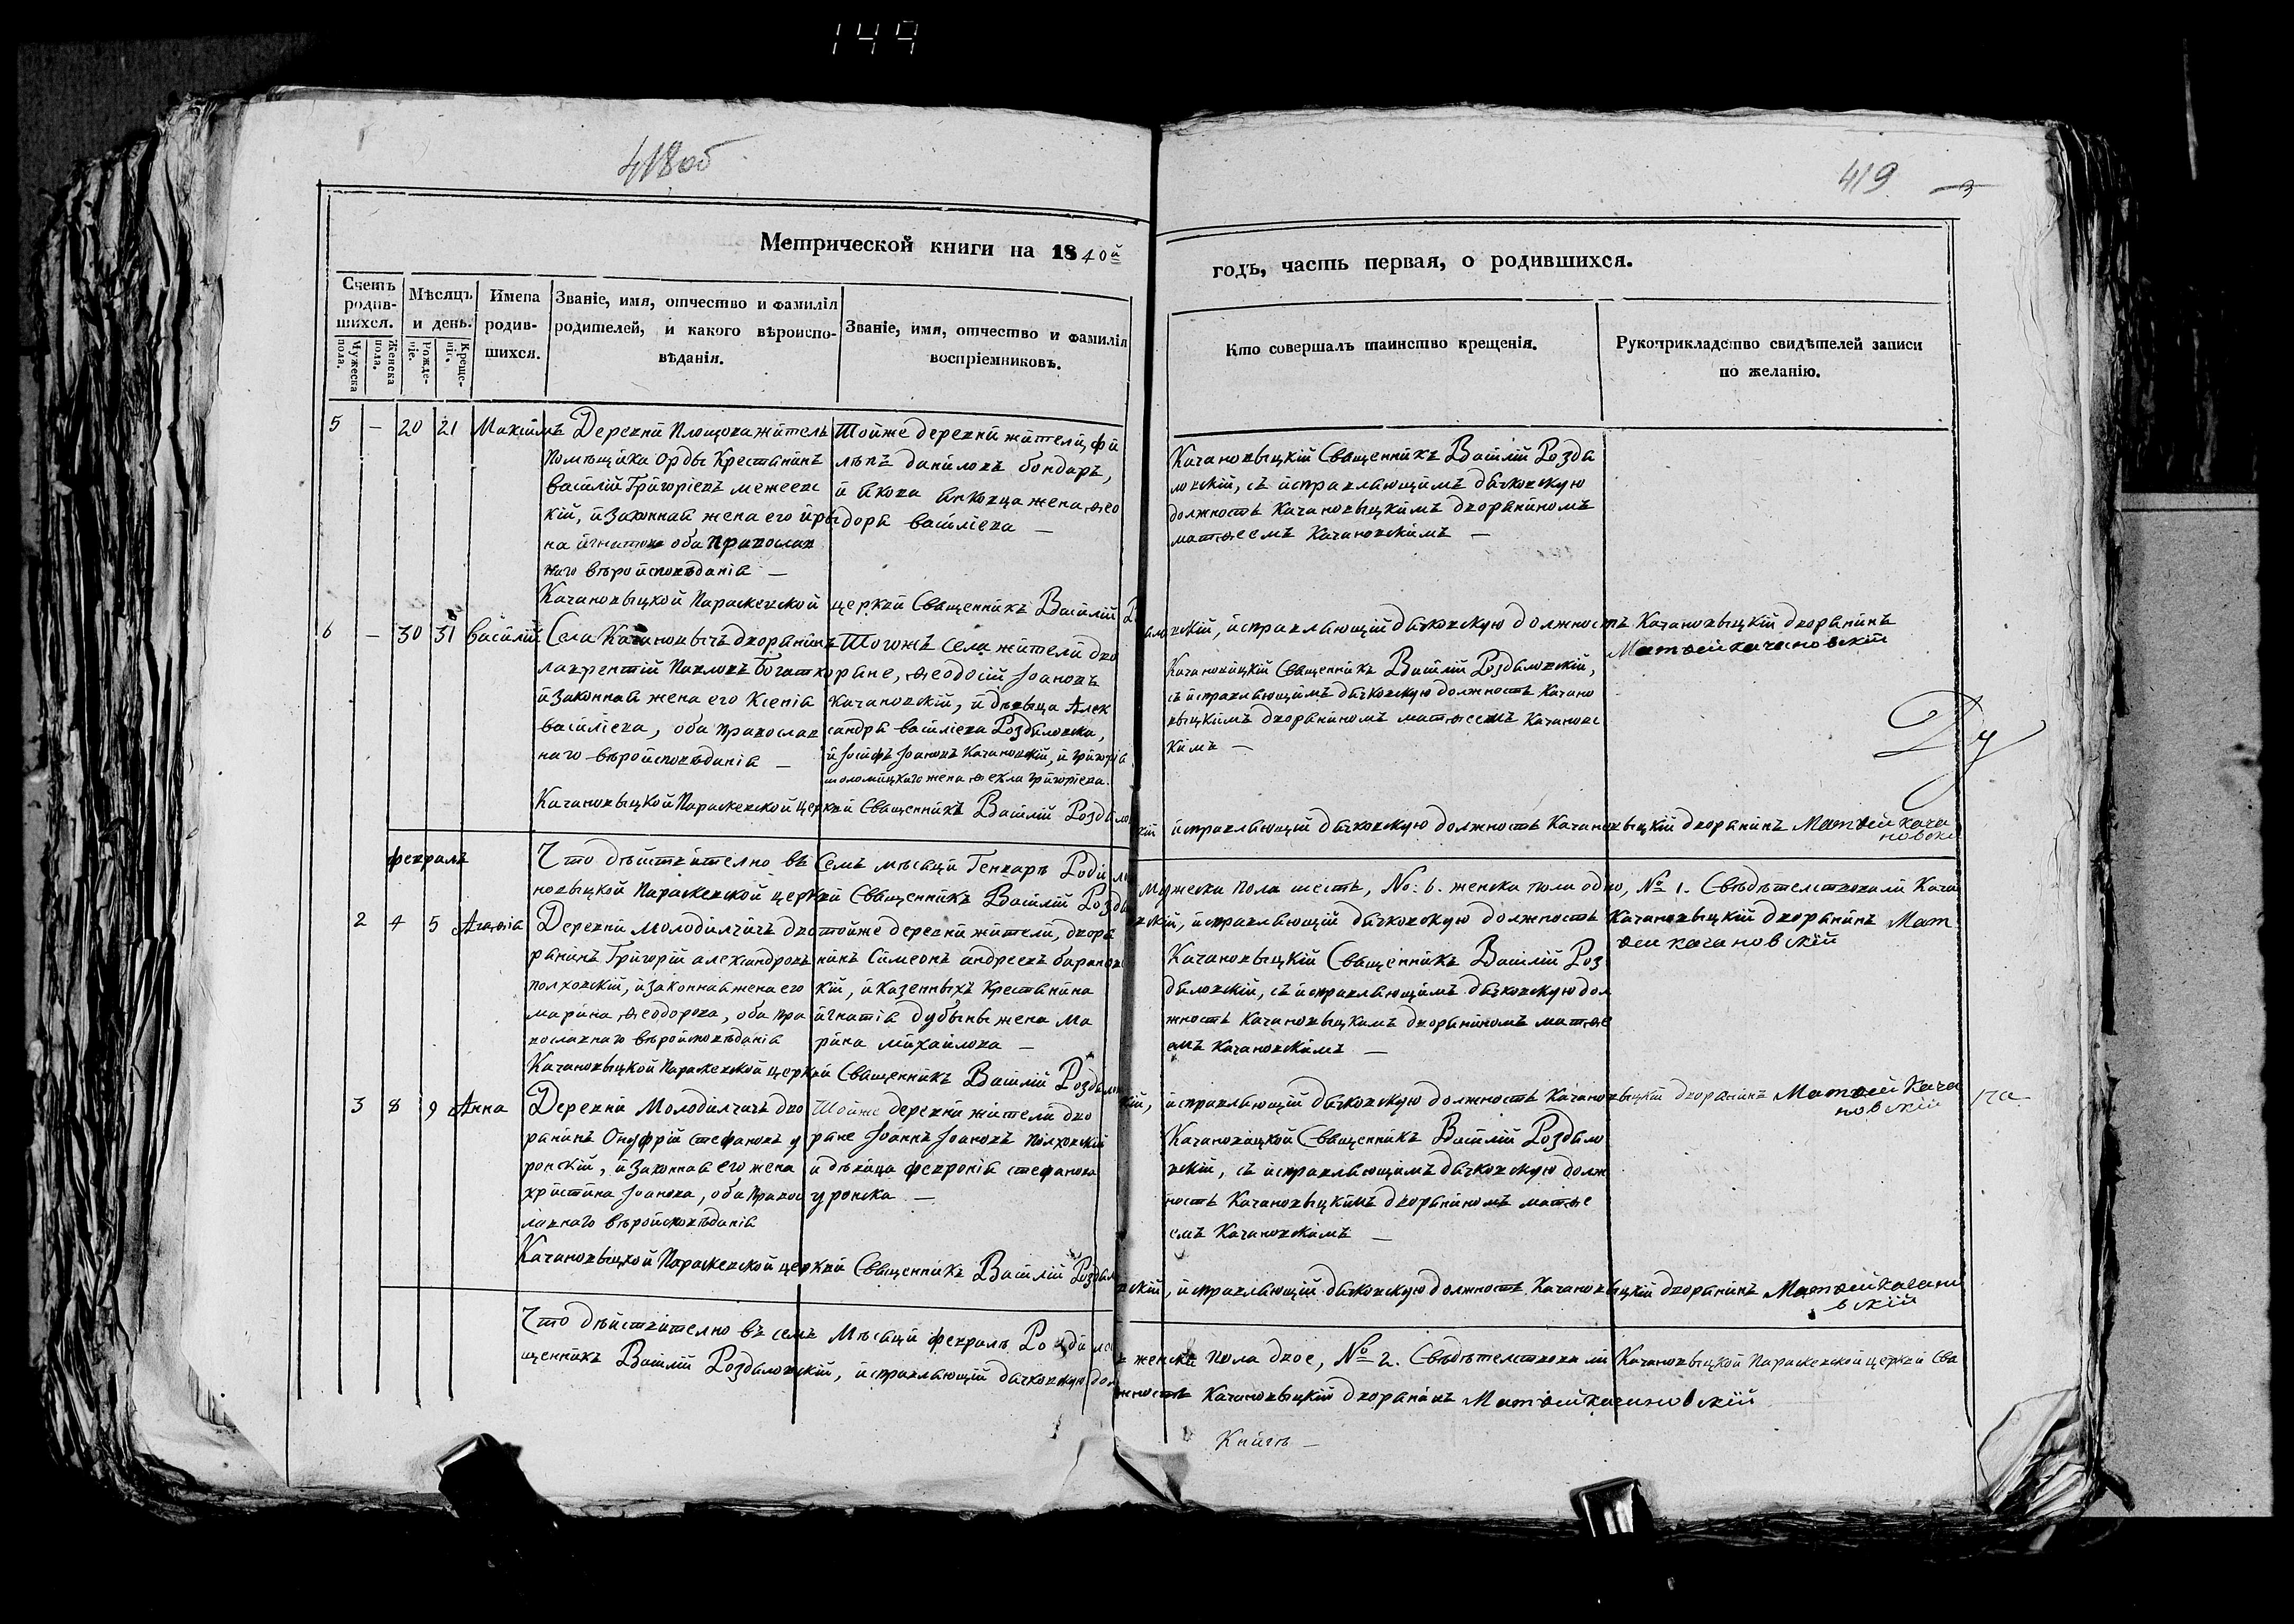 144
418об
419
Метрической книги на 1840й
годъ, часть первая, о родившихся.
Счетъ родившихся.
Мѣсяцъ и день.
Имена родившихся.
Званіе, имя, отчество и фамилія родителей, и какого вѣроисповѣданія.
Званіе, имя, отчество и фамилія воспріемниковъ.
Кто совершалъ таинство крещенія.
Рукоприкладство свидѣтелей записи по желанію.
Мужеска пола.
Женска пола.
Рожденіе.
Крещеніе.
5 — 20 21 Максимъ
Деревни Площова житель
помѣщика Орды Крестянинъ
василій Григоріевъ межеевс
кій, и законная жена его ири
на игнатова оба православ
наго вѣроисповѣданія —
Тойже деревни жители, фи
липъ даниловъ бондаръ,
и якова янковца жена, ѳео
дора василіева —
Качановыцкій Священникъ Василій Розди
ловскій, съ исправляющимъ дячковскую
должность Качановыцкимъ дворяниномъ
матѳеемъ Качановскимъ —
Качановыцкой Параскевской церкви Священникъ Василій
ловскій, исправляющий дячковскую должность Качановыцкій дворянинъ
Матѳей качановскій
6 — 30 31 Василій
Села Качановычъ дворянинъ
лаврентій Павловъ Богатко
и законная жена его Ксенія
василіева, оба православ
наго вѣроисповѣданія —
Тогожъ села жители дво
ряне, ѳеодосій Іоановъ
качановскій, и дѣвица Алек
сандра василіева Роздяловска,
и Іосифъ Іоановъ Качановскій, и григорія
жена ѳекла григоріева.
Качановицкій Священникъ Василій Роздяловскій,
съ исправляющимъ дячковскую должность Качано
выцкимъ дворяниномъ матѳеемъ Качановс
кимъ —
Качановыцкой Параскевской церкви Священникъ Василій Роздялов
кій исправляющий дячковскую должность Качановыцкій дворянинъ Матѳей кача
новскі
февраль
Что дѣиствително въ Семъ мѣсяци Генваръ Родило
мужеска пола шесть, №: 6. женска пола одно, № 1. Свѣдѣтелствовали Кача
новыцкой Параскевской церкви Священникъ Василій Роздя
вскій, исправляющий дячковскую должность Качановыцкій дворянинъ Мат
ѳеи качановскій
2 4 5 Агаѳія
Деревни молодилчичъ дво
рянинъ Григорій александровъ
полховскій, и законная жена его
марина ѳеодорова, оба пра
вославнаго вѣроисповѣданія
тойже деревни жители, дворя
нинъ Симеонъ андреевъ баранов
кій, и казенныхъ Крестянина
игнатія дубины жена ма
рина михайлова —
Качановыцкій Священникъ Василій Роз
дяловскій, съ исправляющимъ дячковскую дол
жность Качановыцкимъ дворяниномъ матѳе
емъ Качановскимъ —
Качановыцкой Параскевской церкви Священникъ Василій Роздялов
кій, исправляющий дячковскую должность Качановыцкій дворянинъ Матѳей Кача
новскій
3 8 9 Анна
Деревни Молодилчичъ дво
рянинъ Онуфрій стефановъ у
ронскій, и законная его жена
христина Іоанова, оба правос
лавнаго вѣроисповѣданія
Тойже деревни жители дво
ряне Іоаннъ Іоановъ полховскій
и дѣвица февронія стефанова
уронска —
Качановицкой Священникъ Василій Роздяло
вскій, съ исправляющимъ дячковскую долж
ность Качановыцкимъ дворяниномъ матѳе
емъ Качановскимъ —
Качановыцкой Параскевской церкви Священникъ Василій Роздял
вскій, исправляющий дячковскую должность Качановыцкій дворянинъ Матѳей качано
вскій
Что дѣиствително въ семъ Мѣсяци февраль Родилос
ъ женска пола двое, № 2. Свѣдѣтелствовали Качановыцкой Параскевской церкви Свя
щенникъ Василій Роздяловскій, исправляющий дячковскую дол
жность Качановыцкій дворянинъ Матѳей качановскій